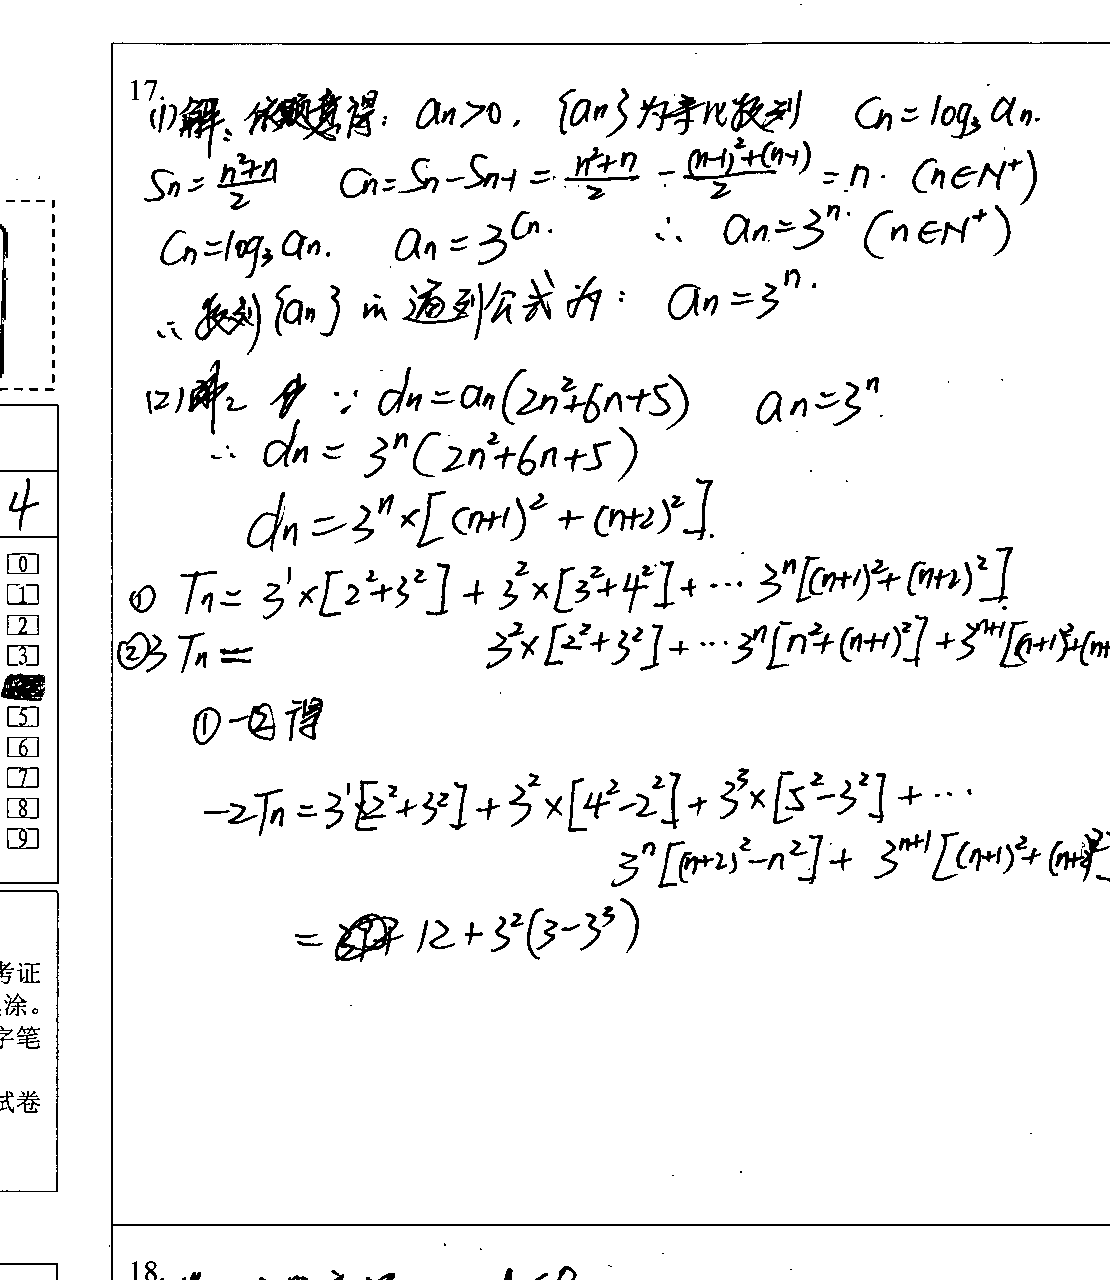 17.
(1)解: 依题意得: an>0, {an}为等比数列 Cn=log₃an.
Sn=(n²+n)/2 Cn=Sn-Sn-1=(n²+n)/2-((n-1)²+(n-1))/2=n. (n∈N⁺)
Cn=log₃an. an=3^Cn. ∴ an=3ⁿ. (n∈N⁺)
∴ 数列{an}的通列公式为: an=3ⁿ.
(2)解: ∵ dn=an(2n²+6n+5) an=3ⁿ.
∴ dn=3ⁿ(2n²+6n+5)
dn=3ⁿ×[(n+1)²+(n+2)²].
① Tn=3¹×[2²+3²]+3²×[3²+4²]+…3ⁿ[(n+1)²+(n+2)²]
②3Tn= 3²×[2²+3²]+…3ⁿ[n²+(n+1)²]+3ⁿ⁺¹[(n+1)²+(n+
①-②得
-2Tn=3¹[2²+3²]+3²×[4²-2²]+3³×[5²-3²]+…
3ⁿ[(n+2)²-n²]+ 3ⁿ⁺¹[(n+1)²+(n+2)²]
= 12+3²(3-3³)
4
0
1
2
3
5
6
7
8
9
考证
涂。
字笔
试卷
18.